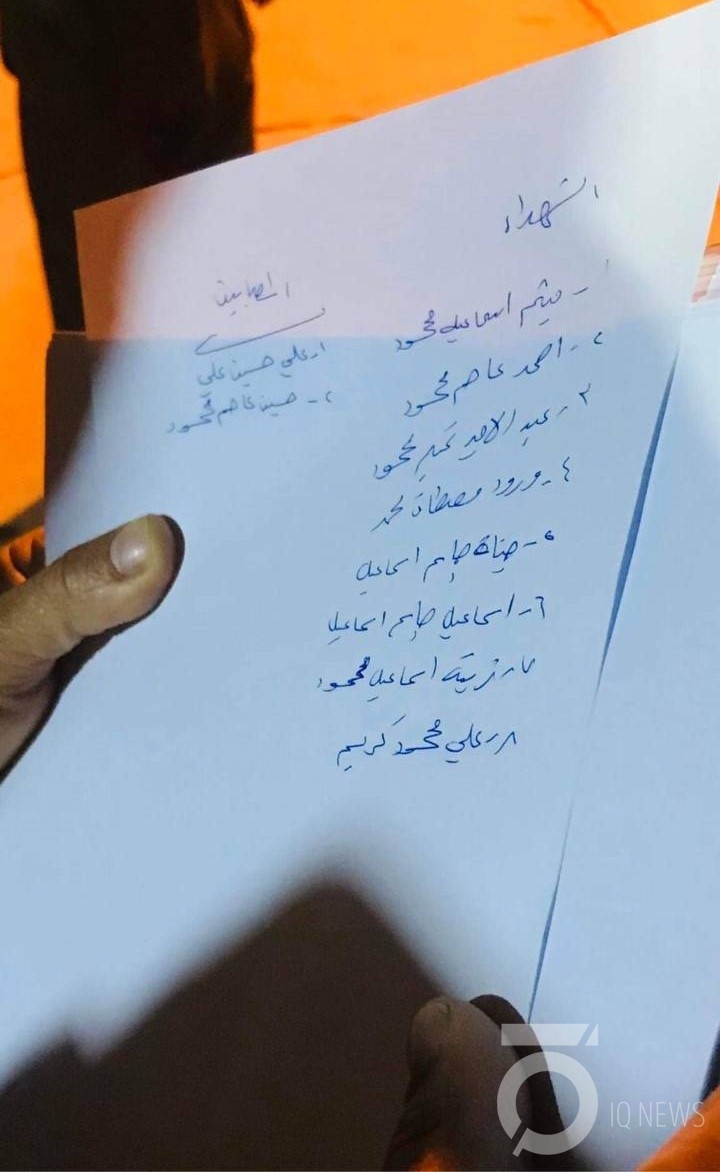 الشهداء
١- ميثم اسماعيل محمود
٢- احمد عاصم محمود
٣- عبد الامير محمود
٤- ورود مصطفى محمد
٥- جاسم اسماعيل
٦- اسماعيل جاسم اسماعيل
٧- اسماعيل محمود
٨- علي محمود كريم
المصابين
١- علي حسين علي
٢- حسين عاصم محمود
IQ NEWS